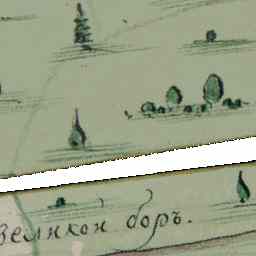 великои боръ.